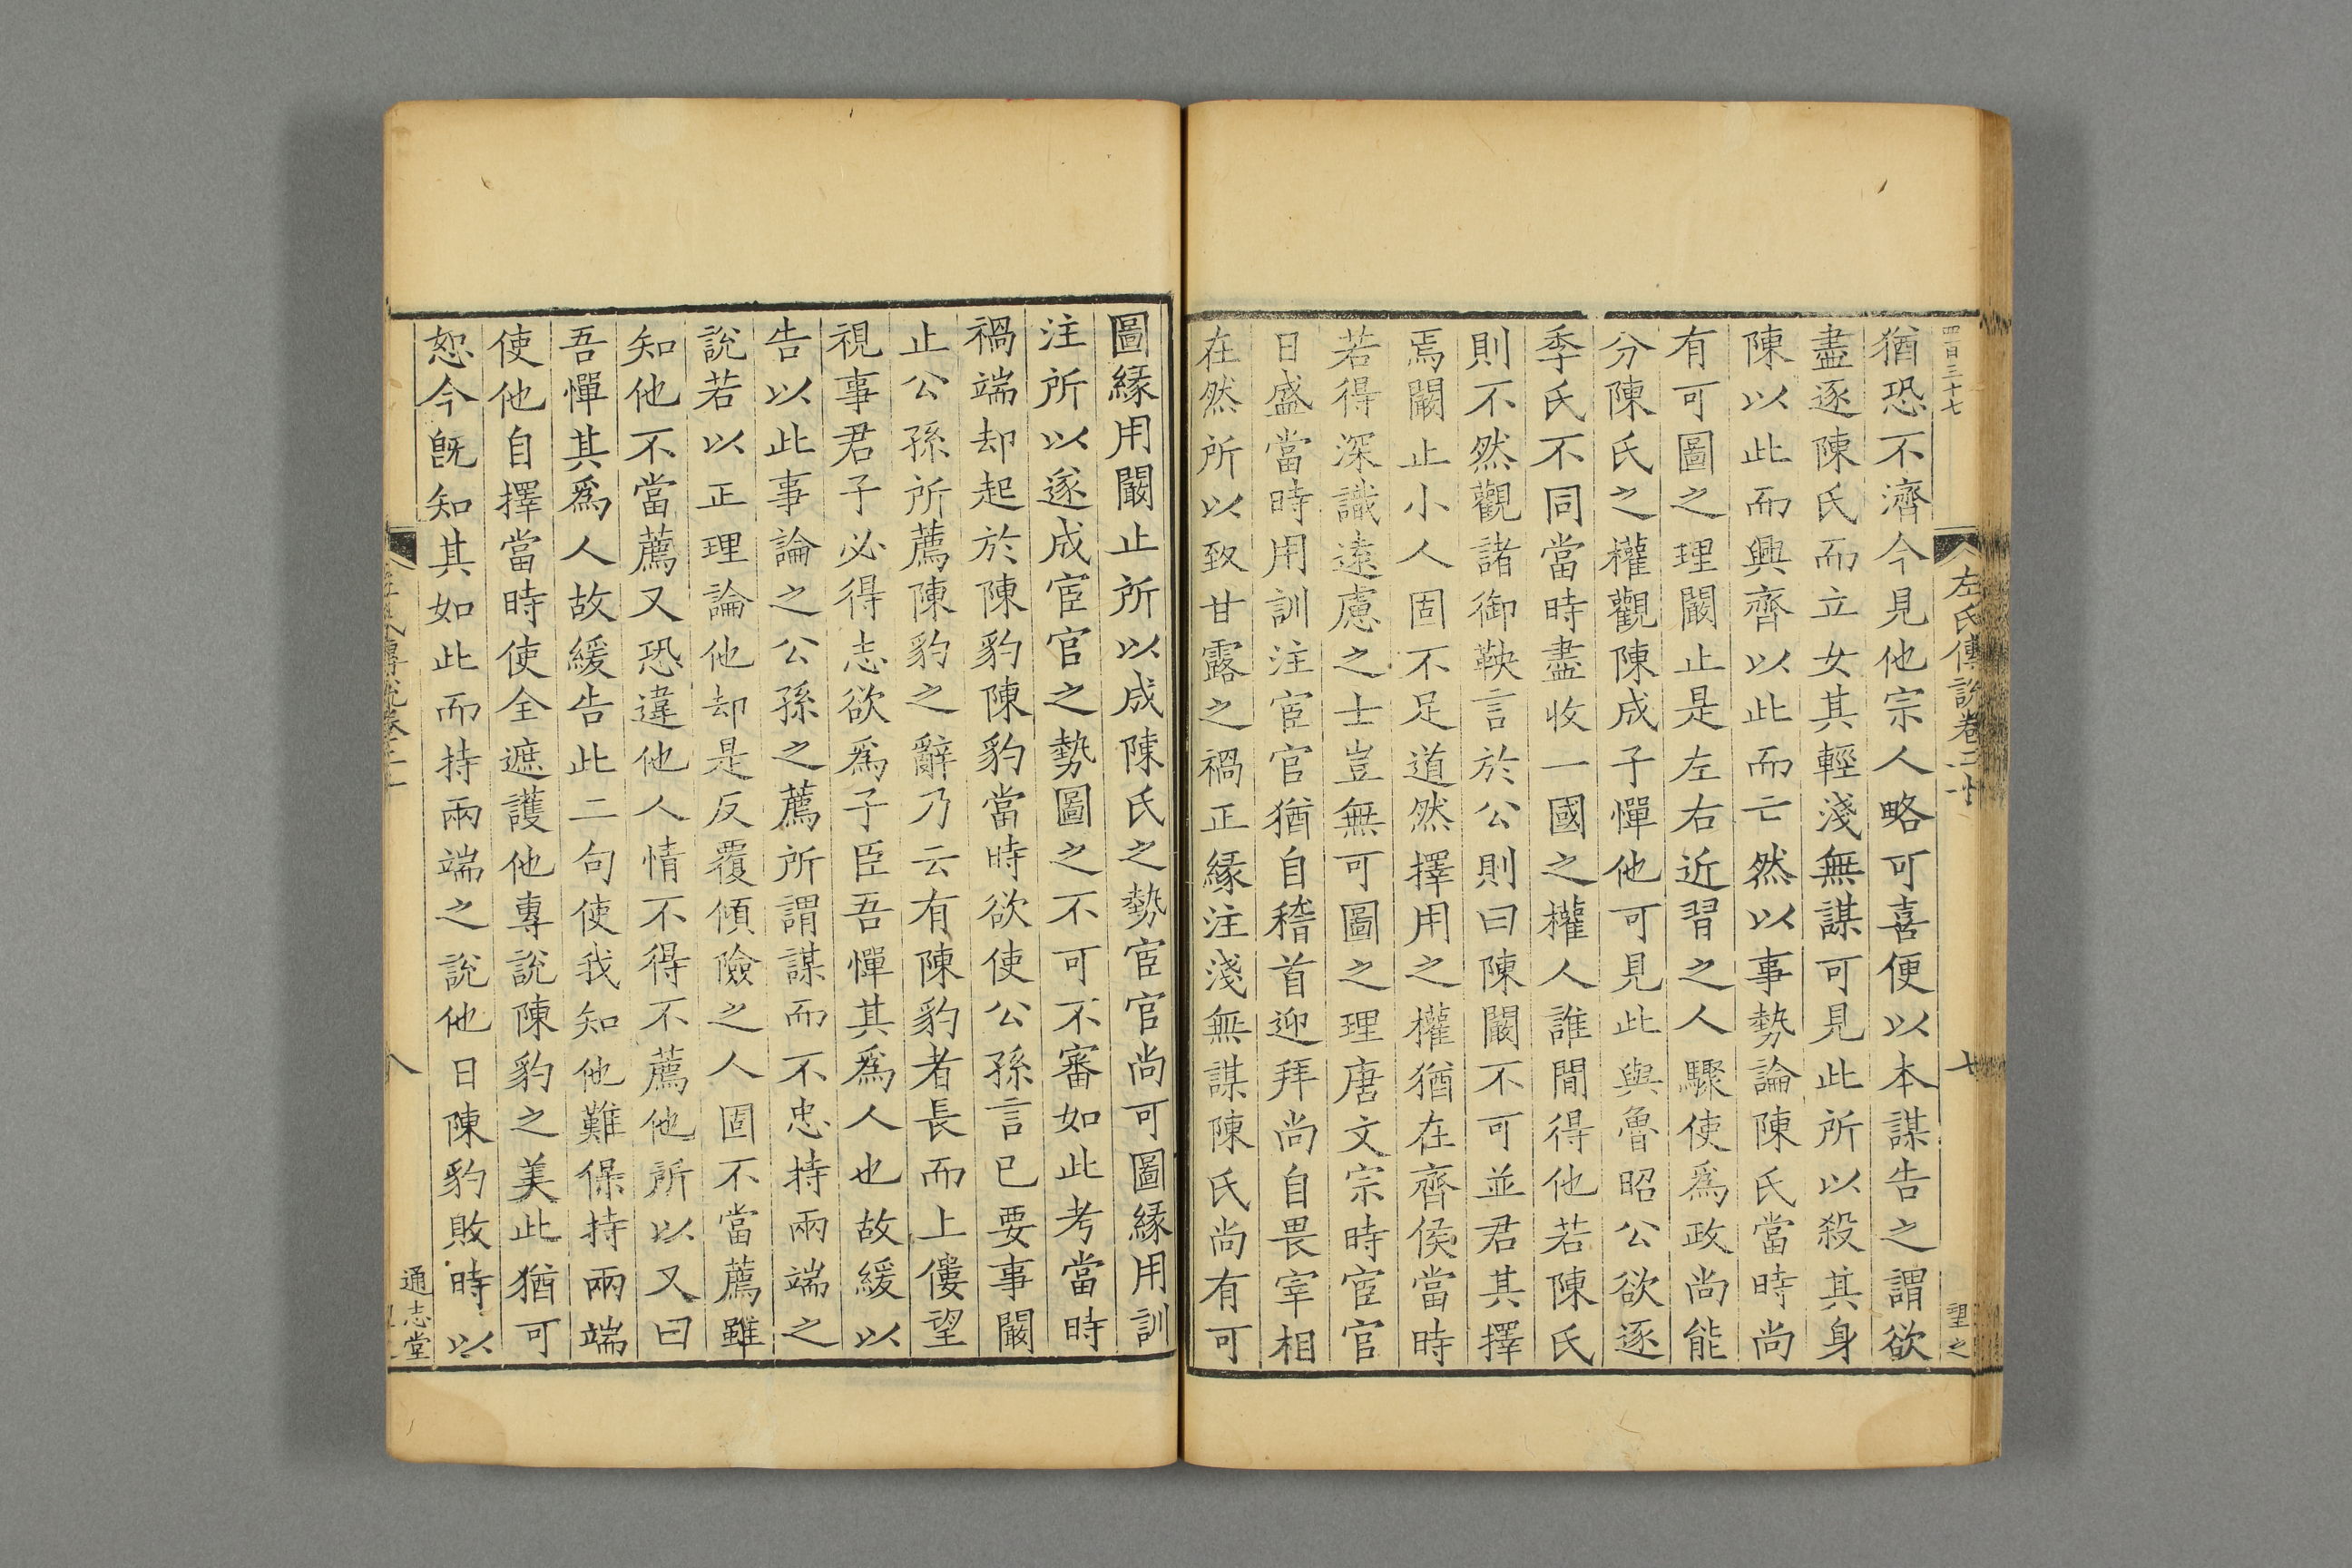 四百三十七
左氏傳說卷二十
七
望之
猶恐不濟今見他宗人略可喜便以本謀告之謂欲
盡逐陳氏而立女其輕淺無謀可見此所以殺其身
陳以此而興齊以此而亡然以事勢論陳氏當時尚
有可圖之理闞止是左右近習之人驟使爲政尚能
分陳氏之權觀陳成子憚他可見此與魯昭公欲逐
季氏不同當時盡收一國之權人誰間得他若陳氏
則不然觀諸御鞅言於公則曰陳闞不可並君其擇
焉闞止小人固不足道然擇用之權猶在齊侯當時
若得深識遠慮之士豈無可圖之理唐文宗時宦官
日盛當時用訓注宦官猶自稽首迎拜尚自畏宰相
在然所以致甘露之禍正緣注淺無謀陳氏尚有可
圖緣用闞止所以成陳氏之勢宦官尚可圖緣用訓
注所以遂成宦官之勢圖之不可不審如此考當時
禍端却起於陳豹陳豹當時欲使公孫言已要事闞
止公孫所薦陳豹之辭乃云有陳豹者長而上僂望
視事君子必得志欲爲子臣吾憚其爲人也故緩以
告以此事論之公孫之薦所謂謀而不忠持兩端之
說若以正理論他却是反覆傾險之人固不當薦雖
知他不當薦又恐違他人情不得不薦他所以又曰
吾憚其爲人故緩告此二句使我知他難保持兩端
使他自擇當時使全遮護他專說陳豹之美此猶可
恕今旣知其如此而持兩端之說他日陳豹敗時以
八
通志堂